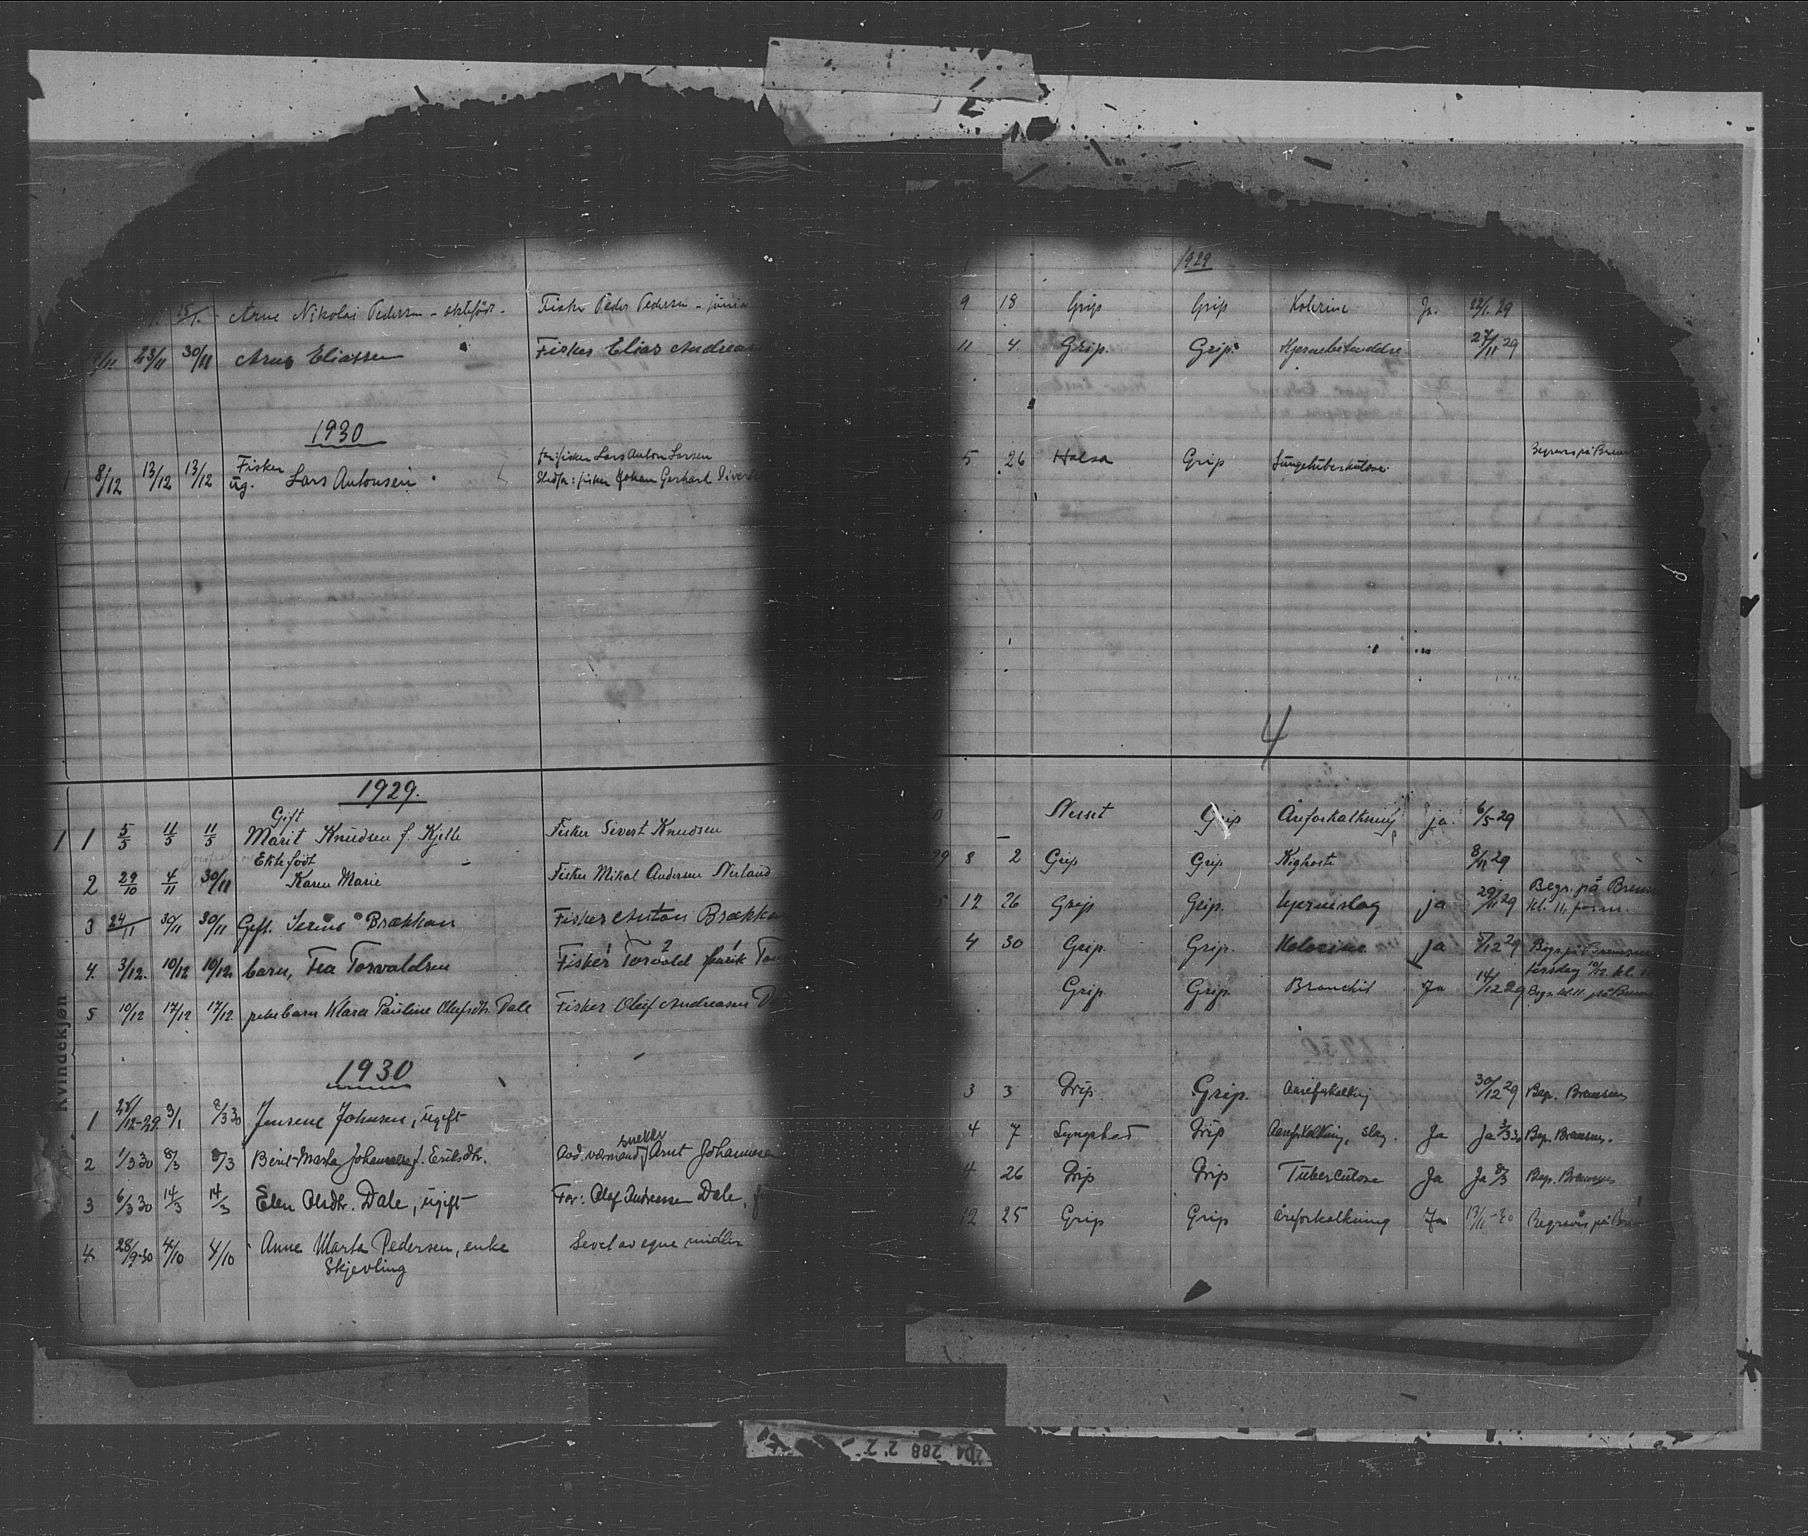 15/1. Arne Nikolai Pedersen - ektefödt - Fisker Peder Pedersen - junior
23/11 30/11 Arne Eliassen Fisker Elias Andreas
1930
1 8/12 13/12 13/12 Fisker
ug. Lars Antonsen
far: fisker Lars Anton Larsen
Stedfar: fisker Johan Gerhard
1929.
Gift
1 1 5/5 11/5 11/5 Marit Knudsen f. Kjelle Fisker Sivert Knudsen
Ektefödt
2 29/10 4/11 30/11 Karen Marie Fisker Mikal Andersen Nerland
3 24/11 30/11 30/11 Gift. Brækkan Fisker Anton Brækka
4. 3/12. 10/12 10/12. barn, Tea Torvaldsen Fisker Torvald
5 10/12 17/12 17/12. pikebarn Klara Pauline Olufsdtr. Dale Fisker Oluf Andreasen D
Kvindekjøn
1930
1 28/12-29 3/1 2/3 30 Jensene Johnsen, ugift
2 1/3 30 8/3 8/3 Berit Marta Johannesen f. Eriksdtr. snekker Arnt Johannesen
3 6/3 30 14/3 14/3 Elen Olsdtr. Dale, ugift Far: Olef Andreasen Dale, f
4. 28/9-30 4/10 4/10 Anne Marta Pedersen, enke Levet av egne midler
Skjevling
1929
9 18 Grip Grip Kolerine Ja. 22/1. 29
11 4. Grip. Grip. Hjernebetendelse 27/11 29
5 26 Halsa Grip Lungetuberkulose Begraves på Brem
4
Nesset Grip Åreforkalkning ja. 6/5 29
8 2 Grip Grip Kighoste 8/11 29
12 26 Grip Grip. hjerneslag ja 29/11 29 Begr. på Brem
kl. 11 form.
4 30 Grip. Grip. Kolerine ja 5/12 29 Begr på Bremsnes
tirsdag 10/12 kl. 11
Grip. Grip. Bronchit Ja 14/12 29 Begr. kl. 11. på Brem
3 3 Grip. Grip. Aareforkalkng 30/12 29 Begr. Bremsnes
4 7 Grip Aareforkalkning, slag. Ja Ja 3/3 30 Begr. Bremsnes.
4 26 Grip Grip Tuberculose Ja Ja 8/3 Begr. Bremsnes
12 25 Grip Grip åreforkalkning Ja 13/11-30 Begraves på Brem
204 288 2.2